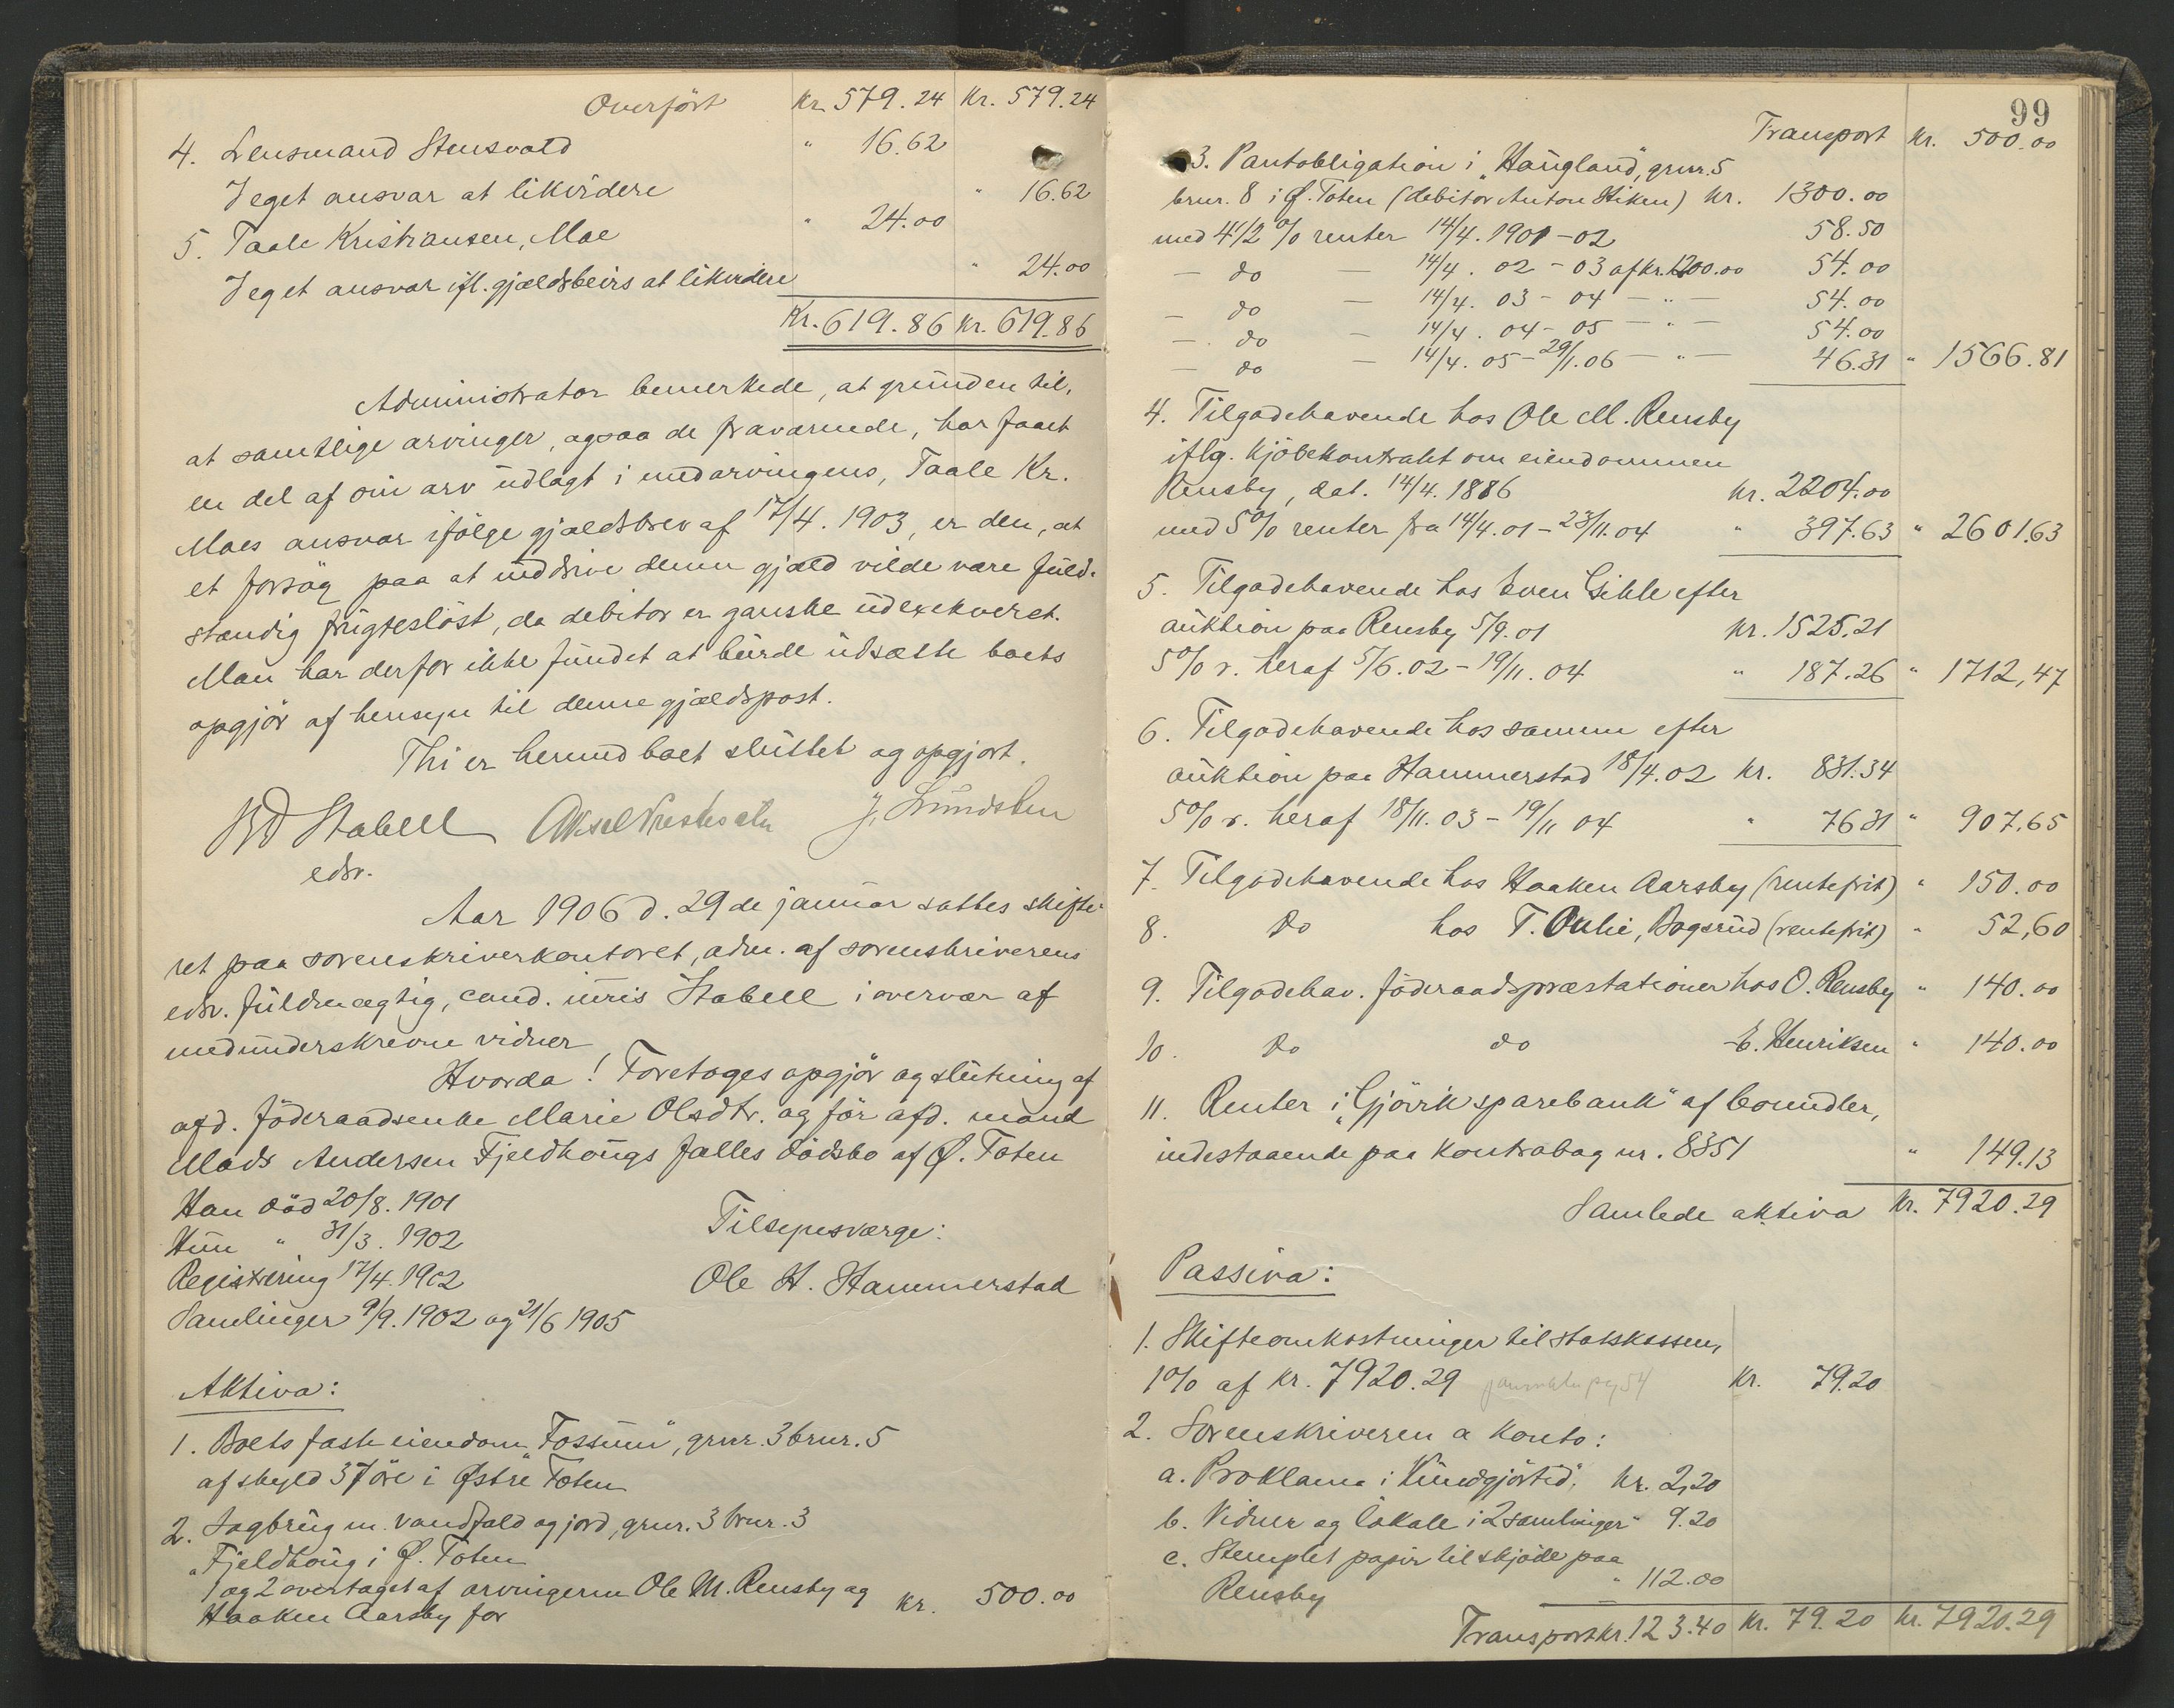 Overført Kr. 579.24 Kr. 579.24
4. Lensmand Stensvold " 16.62
I eget ansvar at likvidere " 16.62
5. Taale Kristiansen, Moe " 24.00
I eget ansvar ifl. gjældsbevis at likvidere " 24.00
Kr. 619.86 Kr. 619.86
Administrator bemerkede, at grunden til,
at samtlige arvinger, ogsaa de fraværende, har faaet
en del af sin arv udlagt i medarvingens, Taale Kr.
Moes ansvar ifølge gjældsbrev af 17/4. 1903, er den, at
et forsøg paa at inddrive denne gjæld vilde være fuld-
stændig frugtesløst, da debitor er ganske udexekveret.
Man har derfor ikke fundet at burde udsætte boets
opgjør af hensyn til denne gjældspost.
Thi er hermed boet sluttet og opgjort.
Stabell J. Lundsten
edsv.
Aar 1906 d. 29de januar sattes skifte-
ret paa sorenskriverkontoret, adm. af sorenskriverens
edsv. fuldmægtig, cand. juris Stabell i overvær af
medunderskrevne vidner
Hvorda! Foretoges opgjør og slutning af
afd. føderaadsenke Marie Olsdtr. og før afd. mand
Mads Andersen Fjeldhougs fælles dødsbo af Ø. Toten
Han død 20/8. 1901
Hun " 31/3. 1902 Tilsynsværge:
Registrering 17/4. 1902 Ole H. Hammerstad
Samlinger 9/9. 1902 og 21/6 1905
Aktiva:
1. Boets faste eiendom "Fossum", grnr. 3 brnr. 5
af skyld 37 øre i Østre Toten
2. Sagbrug m. vandfald og jord, grnr. 3 brnr. 3
"Fjeldhoug i Ø. Toten
1 og 2 overtaget af arvingerne Ole M. Rensby og
Haaken Aarsby for kr. 500.00
99
Transport Kr. 500.00
3. Pantobligation i "Haugland", grnr. 5
brnr. 8 i Ø. Toten (debitor Anton Stiken) kr. 1300.00
med 4 1/2 % renter 14/4. 1901-02 58.50
— do — 14/4. 02 - 03 af kr. 1200.00 54.00
— do — 14/4. 03 - 04 — " — 54.00
— do — 14/4. 04 - 05 — " — 54.00
— do — 14/4. 05 - 29/1. 06 — " — 46.31 " 1566.81
4. Tilgodehavende hos Ole M. Rensby
iflg. kjøbekontrakt om eiendommen
Rensby, dat. 14/4. 1886 kr. 2204.00
med 5% renter fra 14/4. 01 - 23/11. 04 " 397.63 " 2601.63
5. Tilgodehavende hos Sven Gihle efter
auktion paa Rensby 5/9. 01 kr. 1525.21
5% r. heraf 5/6. 02 - 19/11. 04 " 187.26 " 1712,47
6. Tilgodehavende hos samme efter
auktion paa Hammerstad 18/4. 02 kr. 831.34
5% r. heraf 18/11. 03 - 19/11 04 " 76 31 " 907.65
7. Tilgodehavende hos Haaken Aarsby (rentefrit) " 150.00
8. Do hos T. Oulie, Bogsrud (rentefrit) " 52,60
9. Tilgodehav. føderaadspræstationer hos O. Rensby " 140.00
10. Do do - E. Henriksen " 140.00
11. Renter i "Gjøvik sparebank" af bomidler,
indestaaende paa kontrabog nr. 8351 " 149.13
Samlede aktiva kr. 7920.29
Passiva:
1. Skifteomkostninger til statskassen,
1% af kr. 7920.29 Kr. 79.20
2. Sorenskriveren a konto:
a. Proklama i "Kundgjørtid". kr. 2,20
b. Vidner og lokale i 2 samlinger " 9.20
c. Stemplet papir til skjøde paa
Rensby " 112.00
Transport kr. 123.40 Kr. 79.20 kr. 7920.29